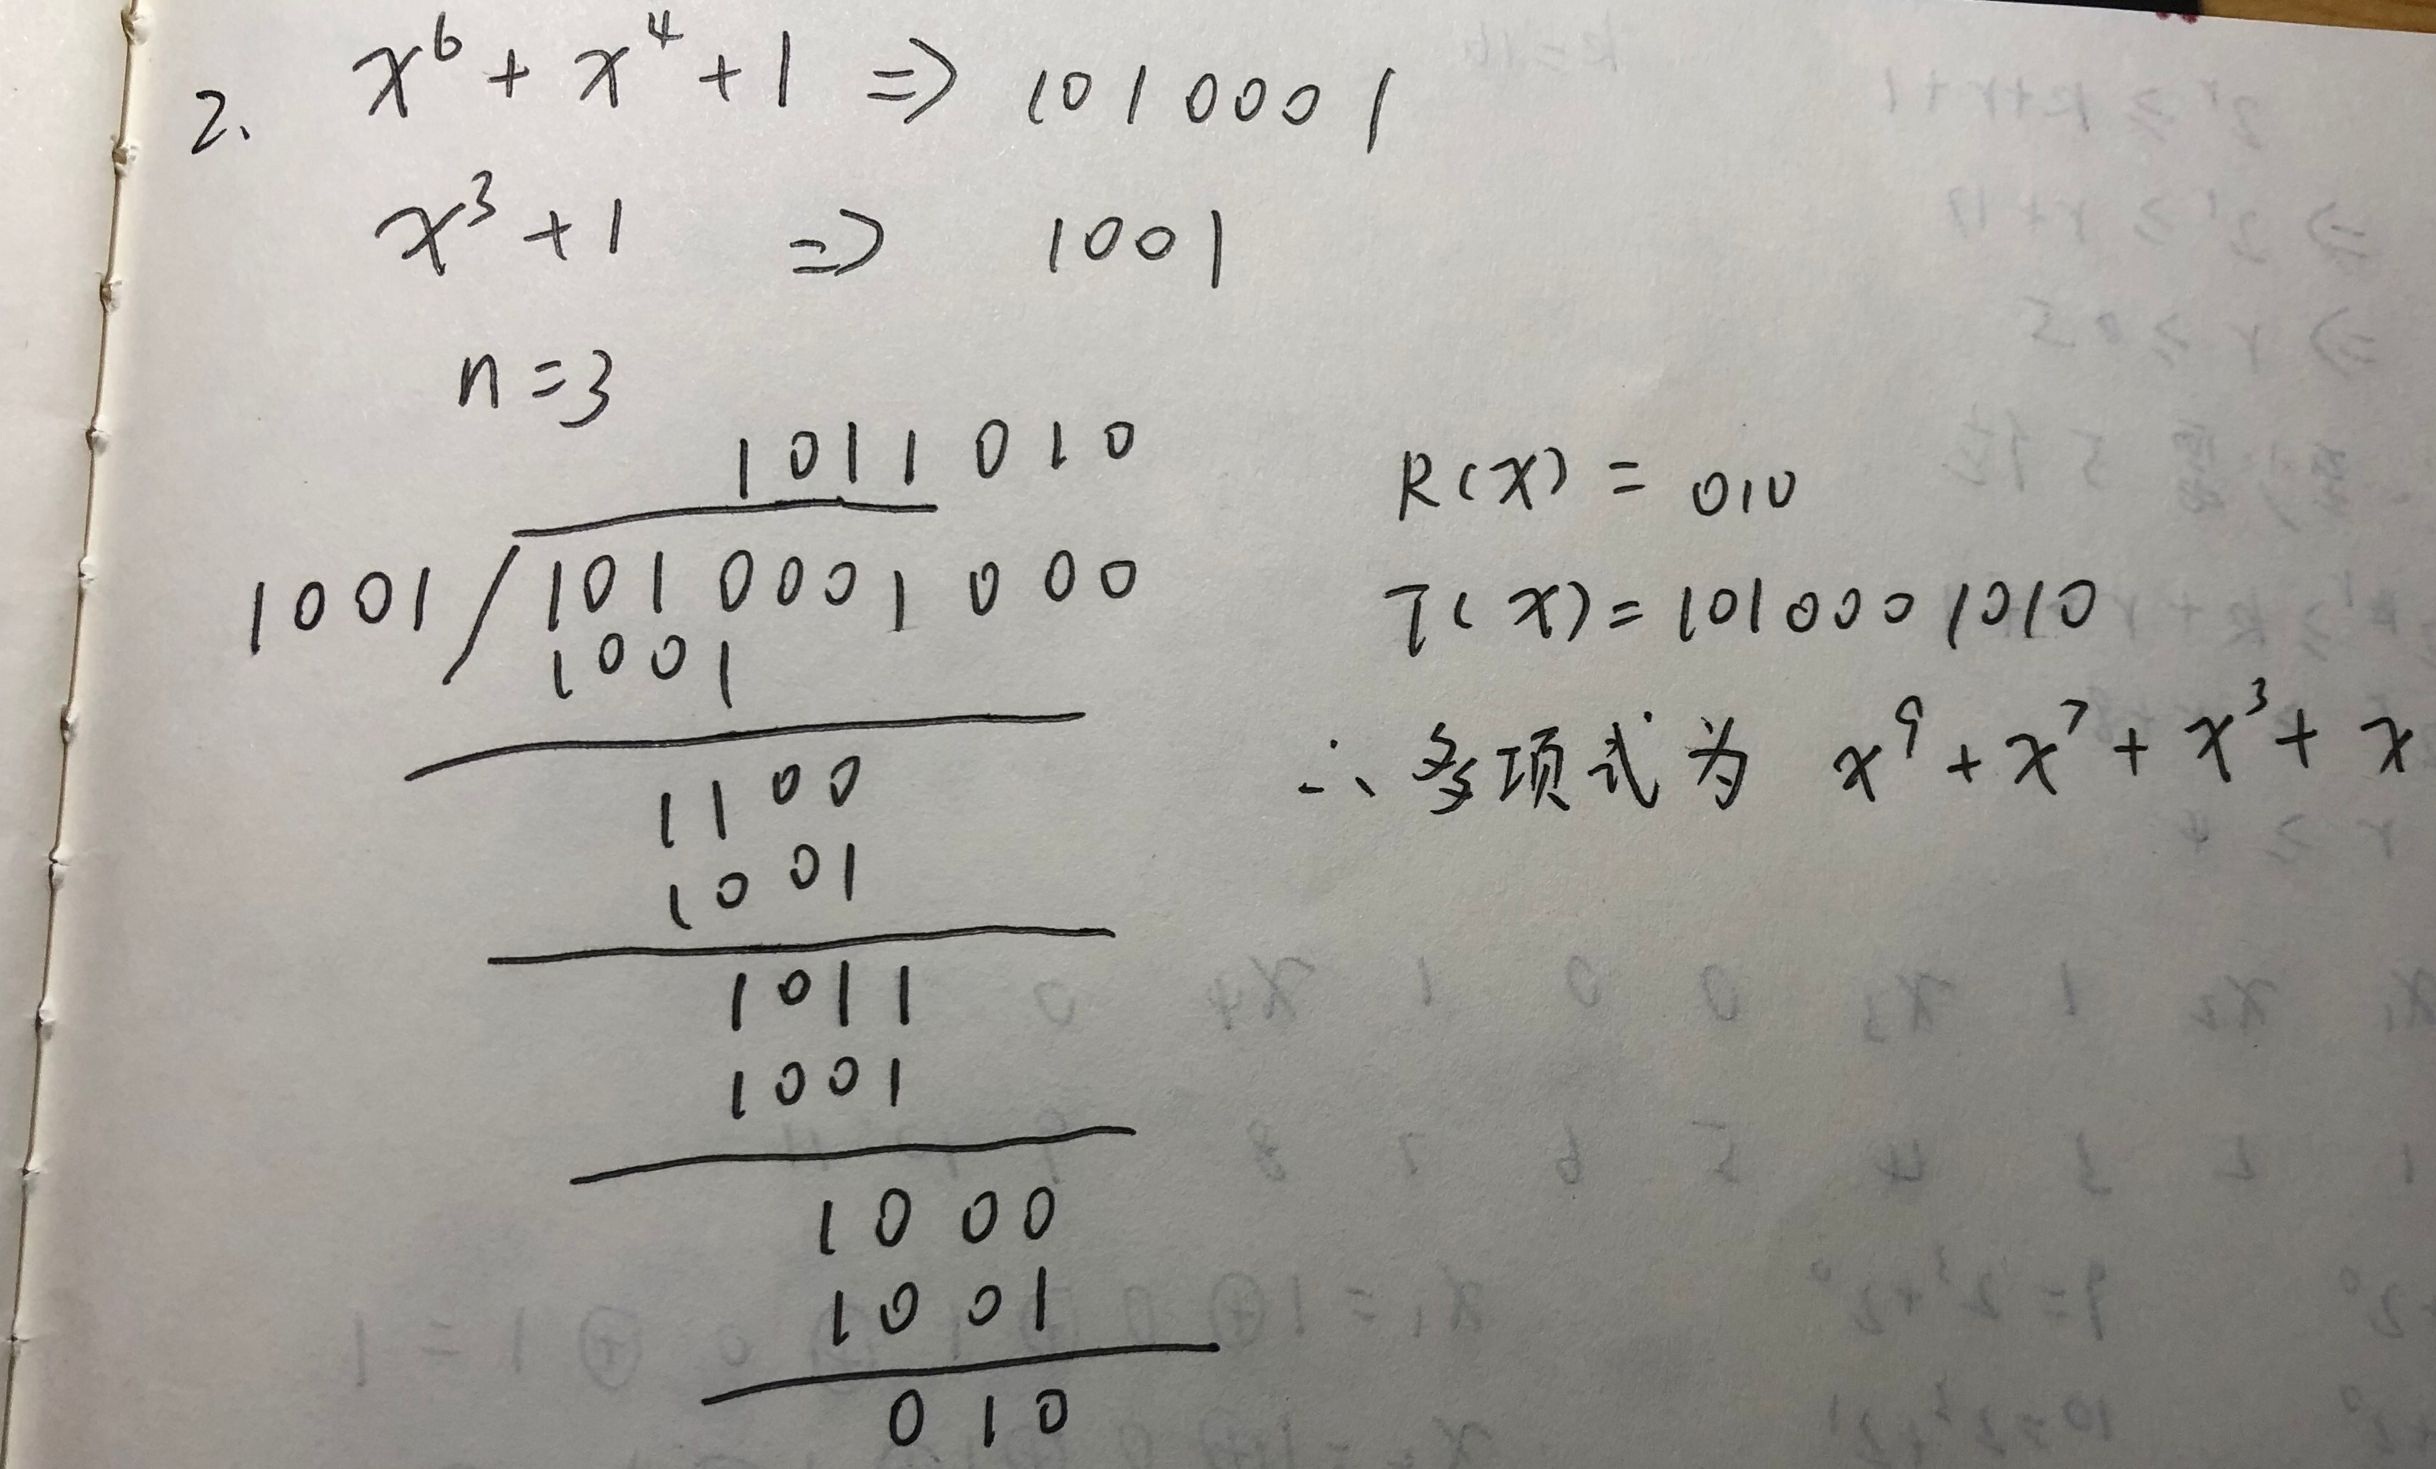 2. x⁶ + x⁴ + 1 => 1010001
x³ + 1 => 1001
n = 3
1011010
1001 / 1010001000
1001
1100
1001
1011
1001
1000
1001
010
R(x) = 010
T(x) = 1010001010
∴ 多项式为 x⁹ + x⁷ + x³ + x